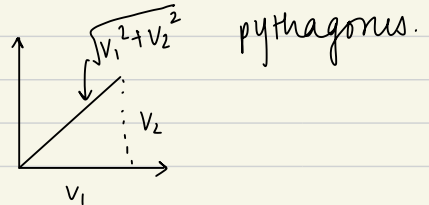 √(V₁² + V₂²)
pythagorus.
V₂
V₁